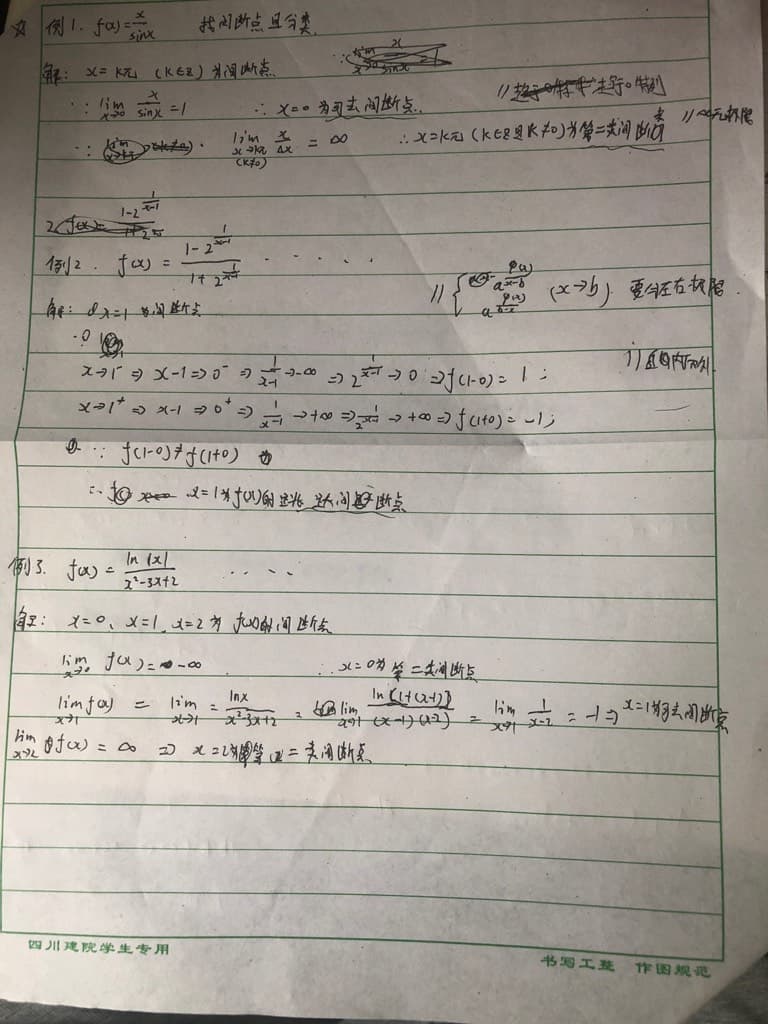 例1. f(x)=x/sinx 找间断点且分类.
解: x=kπ (k∈z) 为间断点.
∵ lim x→0 x/sinx =1 ∴ x=0为可去间断点.
∵ lim x→kπ (k≠0) x/ = ∞ ∴ x=kπ (k∈z且k≠0)为第二类间断点 //
例2. f(x) = (1-2^(1/(x-1)))/(1+2^(1/(x-1))) · · · · ·
// { a^(φ(x)/(x-b)) a^(φ(x)/(b-x)) (x→b). 要分左右极限.
解: x=1为间断点
x→1⁻ ⇒ x-1→0⁻ ⇒ 1/(x-1)→-∞ ⇒ 2^(1/(x-1))→0 ⇒ f(1-0)=1;
x→1⁺ ⇒ x-1⇒0⁺ ⇒ 1/(x-1)→+∞ ⇒ 2^(1/(x-1))→+∞ ⇒ f(1+0)=-1;
∵ f(1-0)≠f(1+0)
∴ x=1为f(x)的 间断点
例3. f(x) = ln|x|/(x²-3x+2) · · · ·
解: x=0、x=1、x=2为 f(x)的间断点
lim x→0 f(x)= -∞ ∴ x=0为第二类间断点
lim x→1 f(x) = lim x→1 = lnx/(x²-3x+2) = lim x→1 ln[1+(x-1)]/((x-1)(x-2)) = lim x→1 1/(x-2) = -1 ⇒ x=1为可去间断点
lim x→2 f(x) = ∞ ⇒ x=2为第二类间断点
四川建院学生专用
书写工整 作图规范